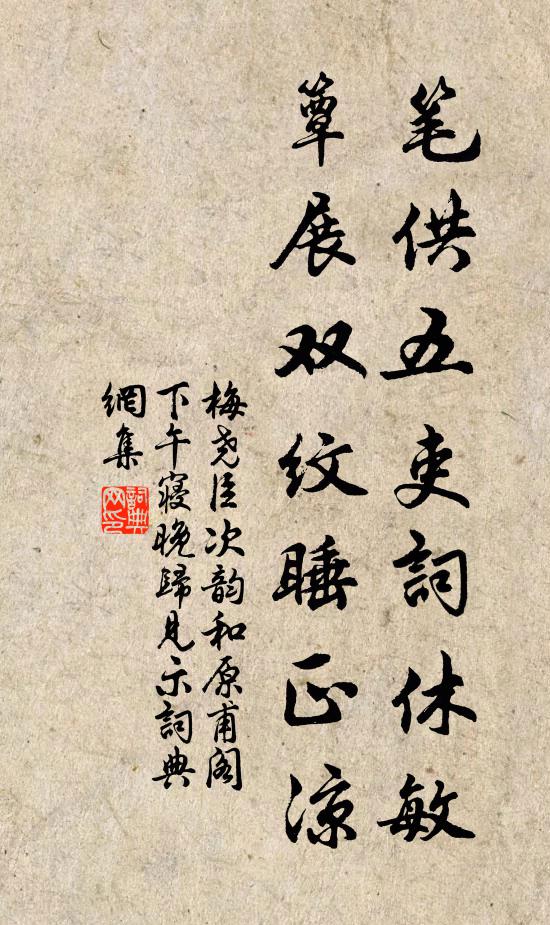 笔供五吏词休敏
簟展双纹睡正凉
梅尧臣次韵和原甫阁
下午寝晚歸见示詞典
網集
詞典
网印